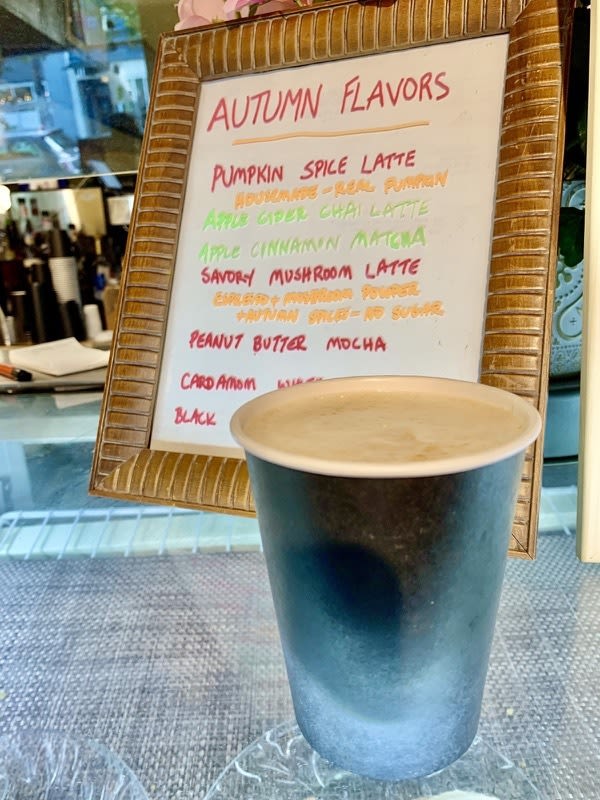 AUTUMN FLAVORS
PUMPKIN SPICE LATTE
HOUSEMADE - REAL PUMPKIN
APPLE CIDER CHAI LATTE
APPLE CINNAMON MATCHA
SAVORY MUSHROOM LATTE
ESPRESSO + MUSHROOM POWDER
+ AUTUMN SPICES - NO SUGAR
PEANUT BUTTER MOCHA
CARDAMOM
BLACK